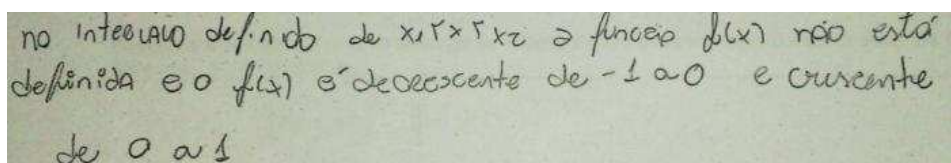 no intervalo definido de x₁ r x r x₂ a função f(x) não está
definida e o f(x) é decrescente de -1 a 0 e crescente
de 0 a 1